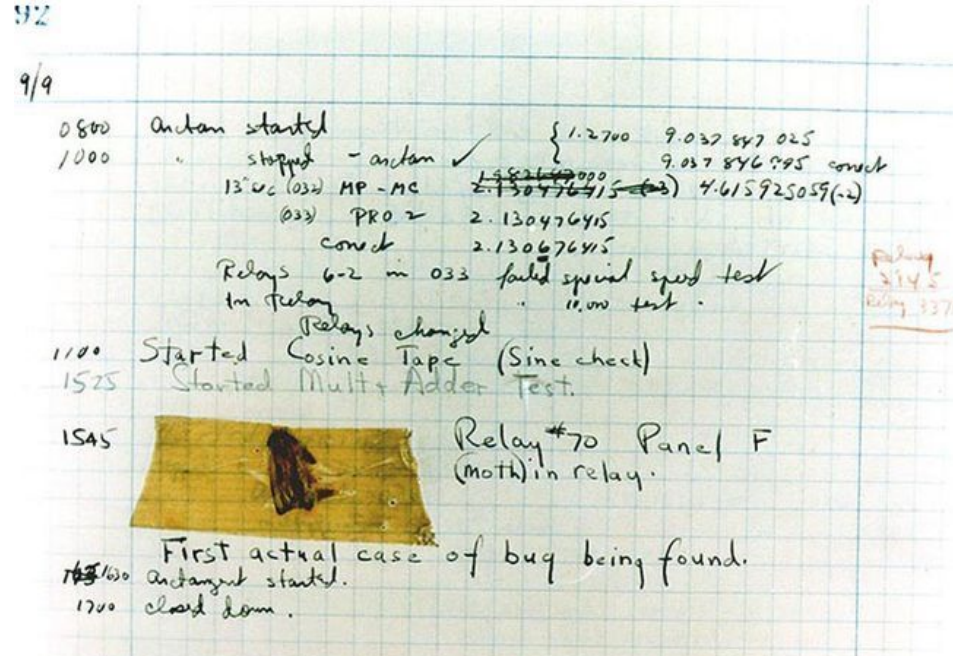 92
9/9
0800 arctan started { 1.2700 9.037 847 025
1000 " stopped - arctan ✓ 9.037 846 795 correct
13"uc (032) MP - MC 2.130476415 (-3) 4.615925059(-2)
(033) PRO 2 2.130476415
correct 2.130676415
Relays 6-2 in 033 failed special speed test
In Relay " 10,000 test .
Relays changed
1100 Started Cosine Tape (Sine check)
1525 Started Mult + Adder Test.
1545 Relay #70 Panel F
(moth) in relay.
First actual case of bug being found.
1630 arctangent started.
1700 closed down.
Relay
2145
Relay 337